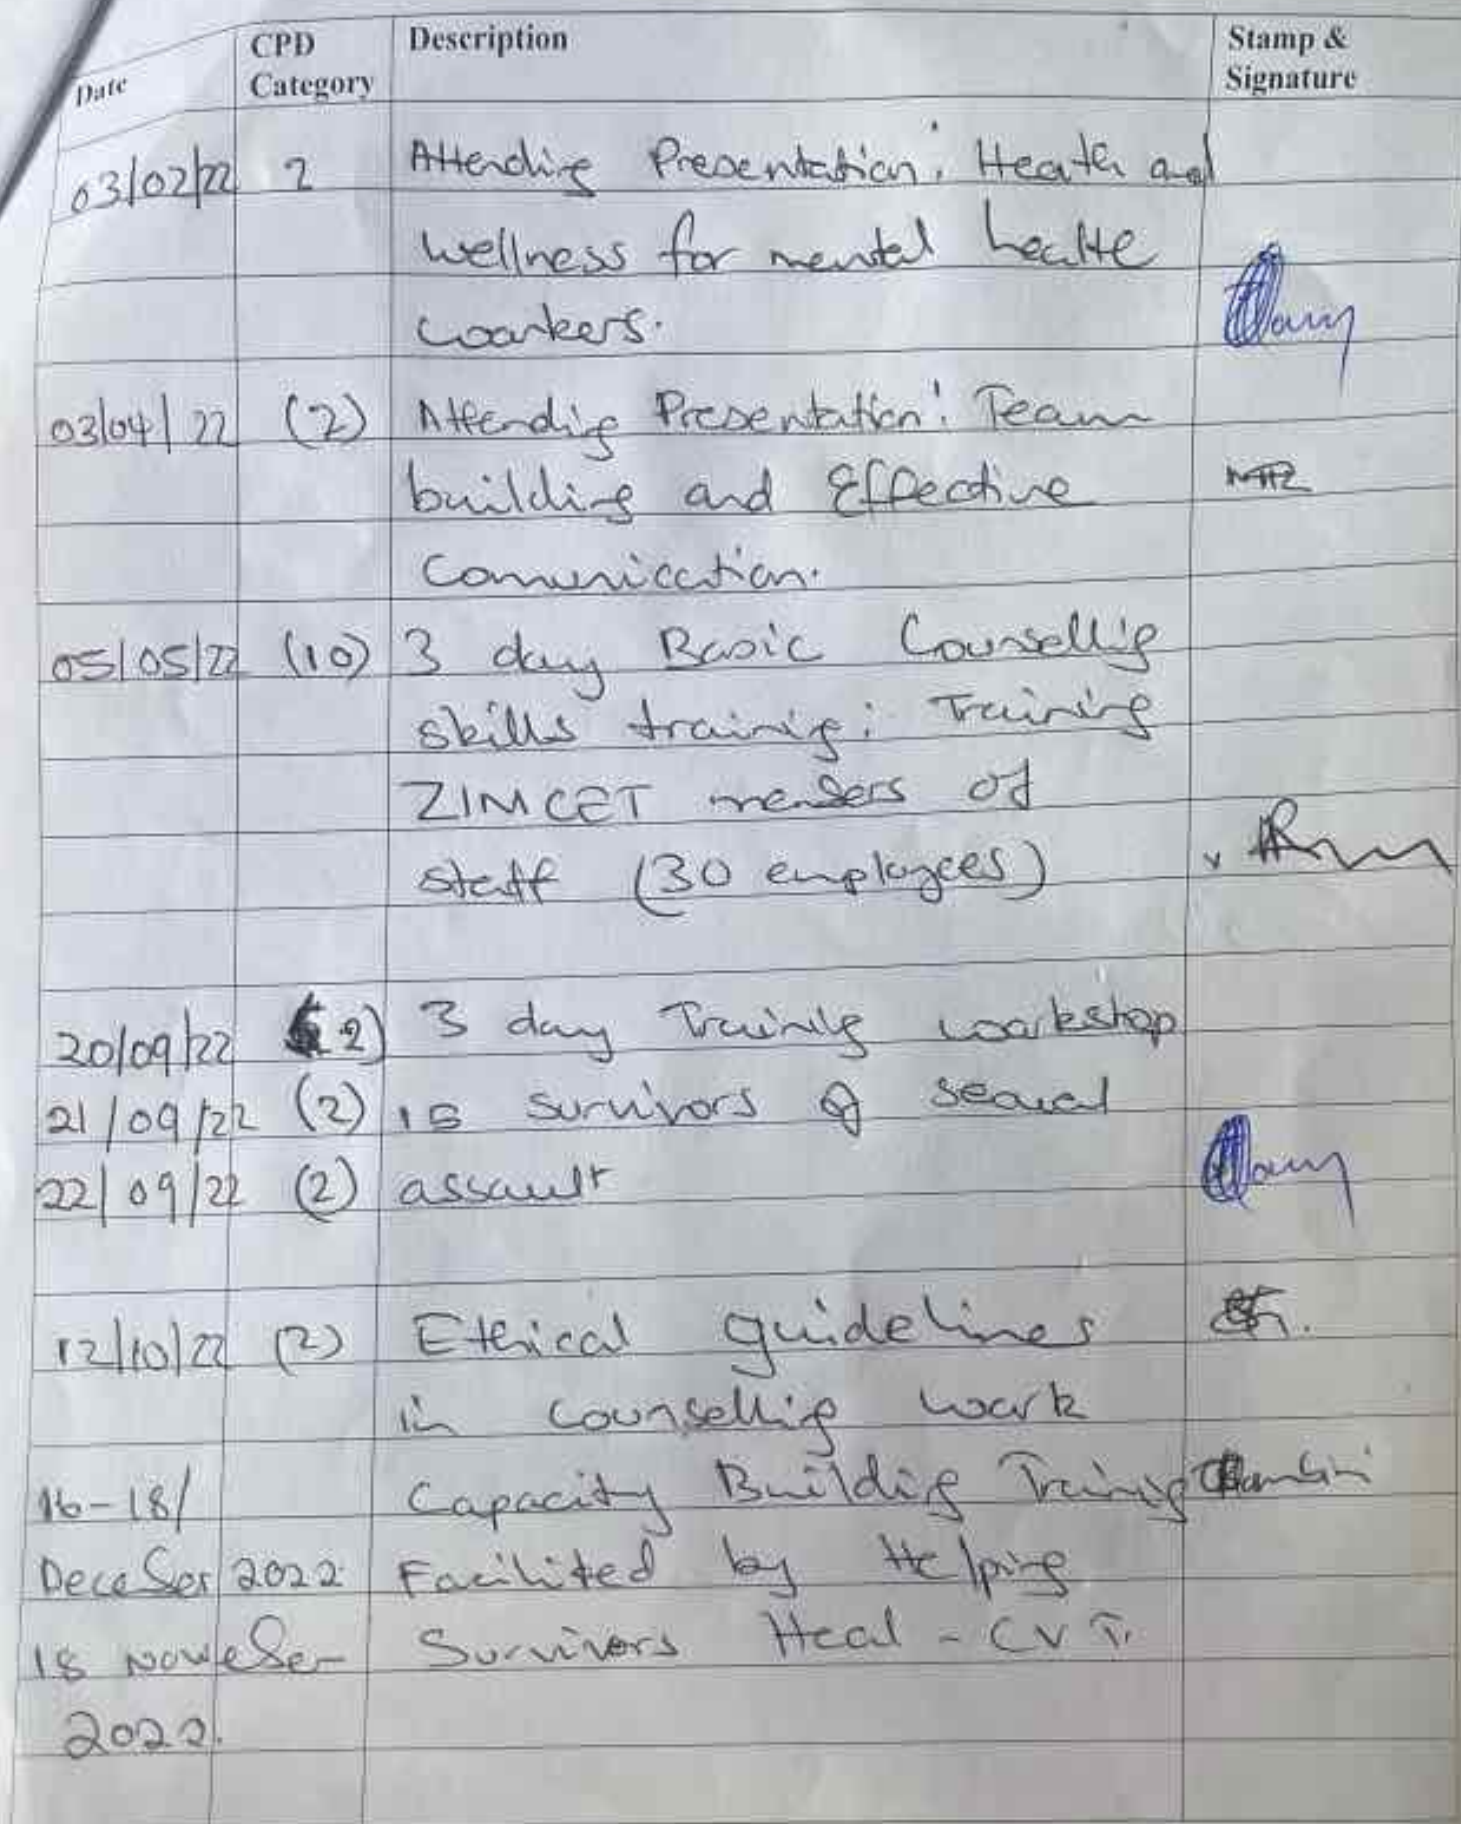 Date CPD Category Description Stamp & Signature
03/02/22 2 Attending Presentation: Heath and
wellness for mental health
workers.
03/04/22 (2) Attending Presentation: Team
building and Effective
Comunication.
05/05/22 (10) 3 day Basic Counselling
skills training: Training
ZIMCET members of
staff (30 employees)
20/09/22 (2) 3 day Training workshop
21/09/22 (2) survivors of sexual
22/09/22 (2) assault
12/10/22 (2) Ethical guidelines
in counselling work
16-18/ Capacity Building Training
December 2022 Facilited by Helping
18 November Survivors Heal - CVT.
2022.